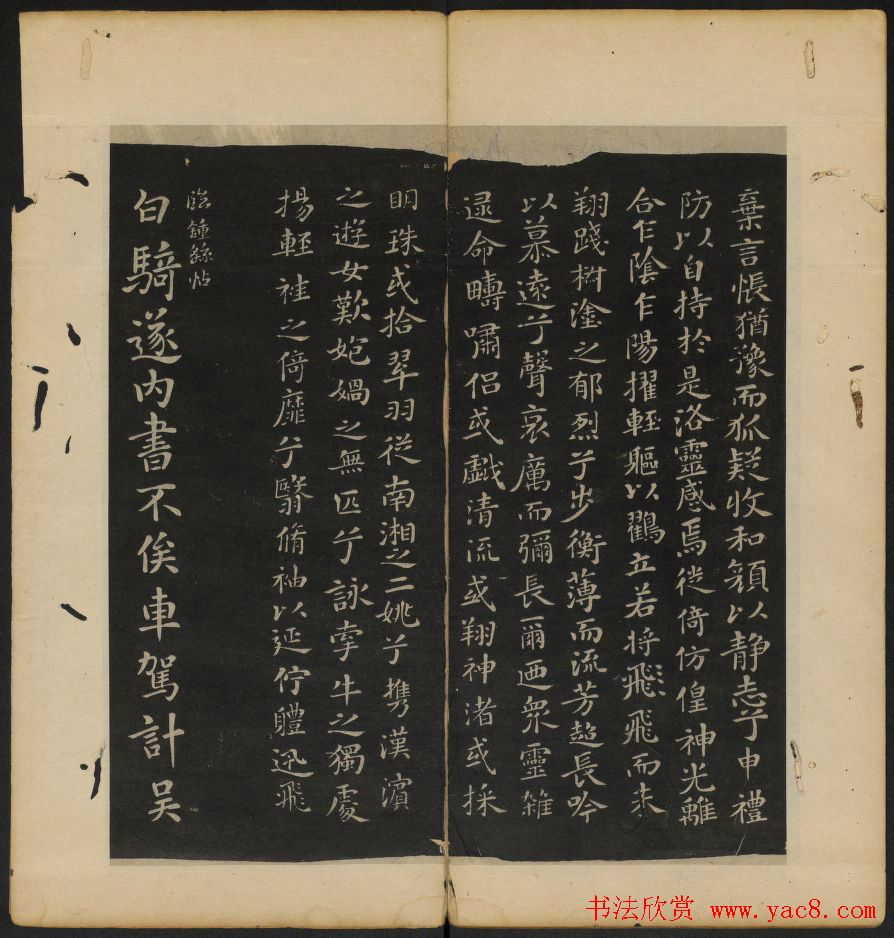 棄言悵猶豫而狐疑收和顏以靜志兮申禮
防以自持於是洛靈感焉徙倚仿偟神光離
合乍陰乍陽擢輕軀以鸖立若將飛飛而未
翔踐椒塗之郁烈兮步衡薄而流芳超長吟
以慕遠兮聲哀厲而彌長爾迺眾靈雜
遝命疇嘯侶或戲清流或翔神渚或採
明珠或拾翠羽從南湘之二姚兮携漢濱
之遊女歎匏媧之無匹兮詠牽牛之獨處
揚輕袿之倚靡兮翳脩袖以延佇軆迅飛
臨鍾繇帖
白騎遂内書不俟車駕計吳
书法欣赏 www.yac8.com